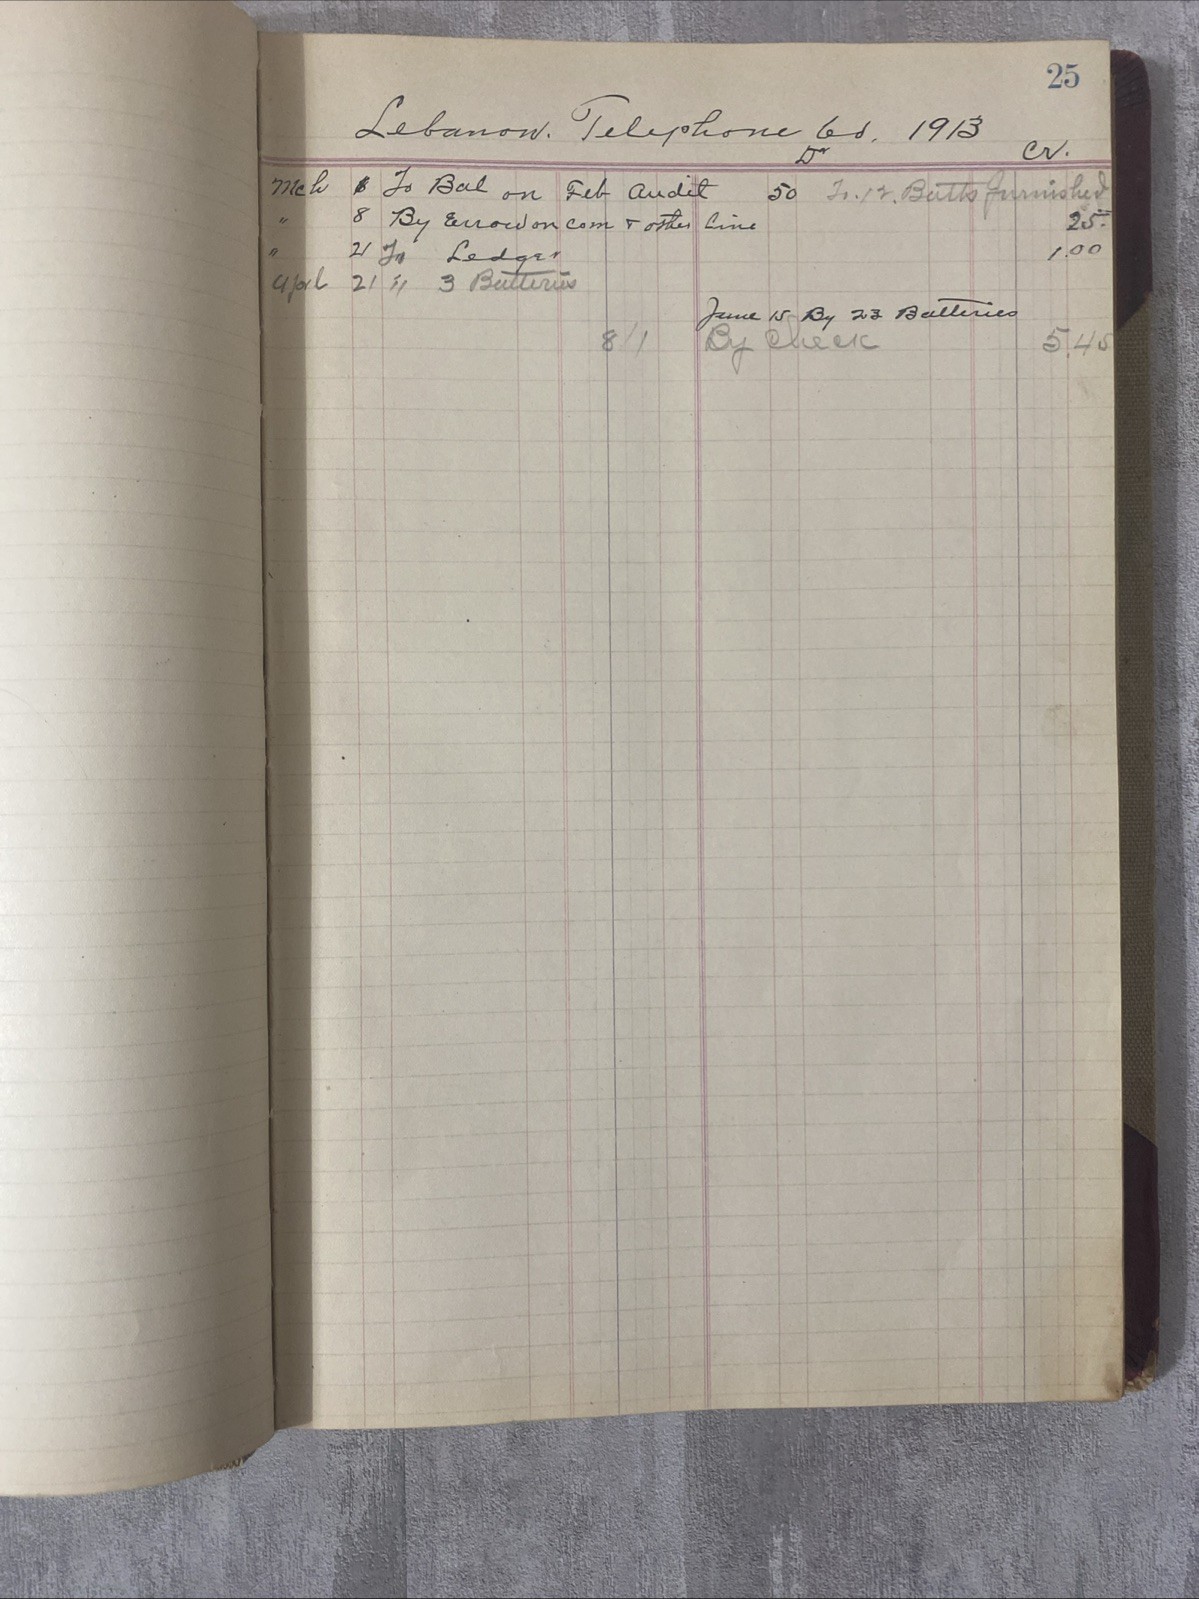 25
Lebanon. Telephone Co. 1913
Dr Cr.
Mch 8 To Bal on Feb Audit 50 12 Batts furnished
" 8 By Error on com + other line 25
" 21 To Ledger 1.00
April 21 " 3 Batteries
June 15 By 23 Batteries
8/1 By Check 5.45